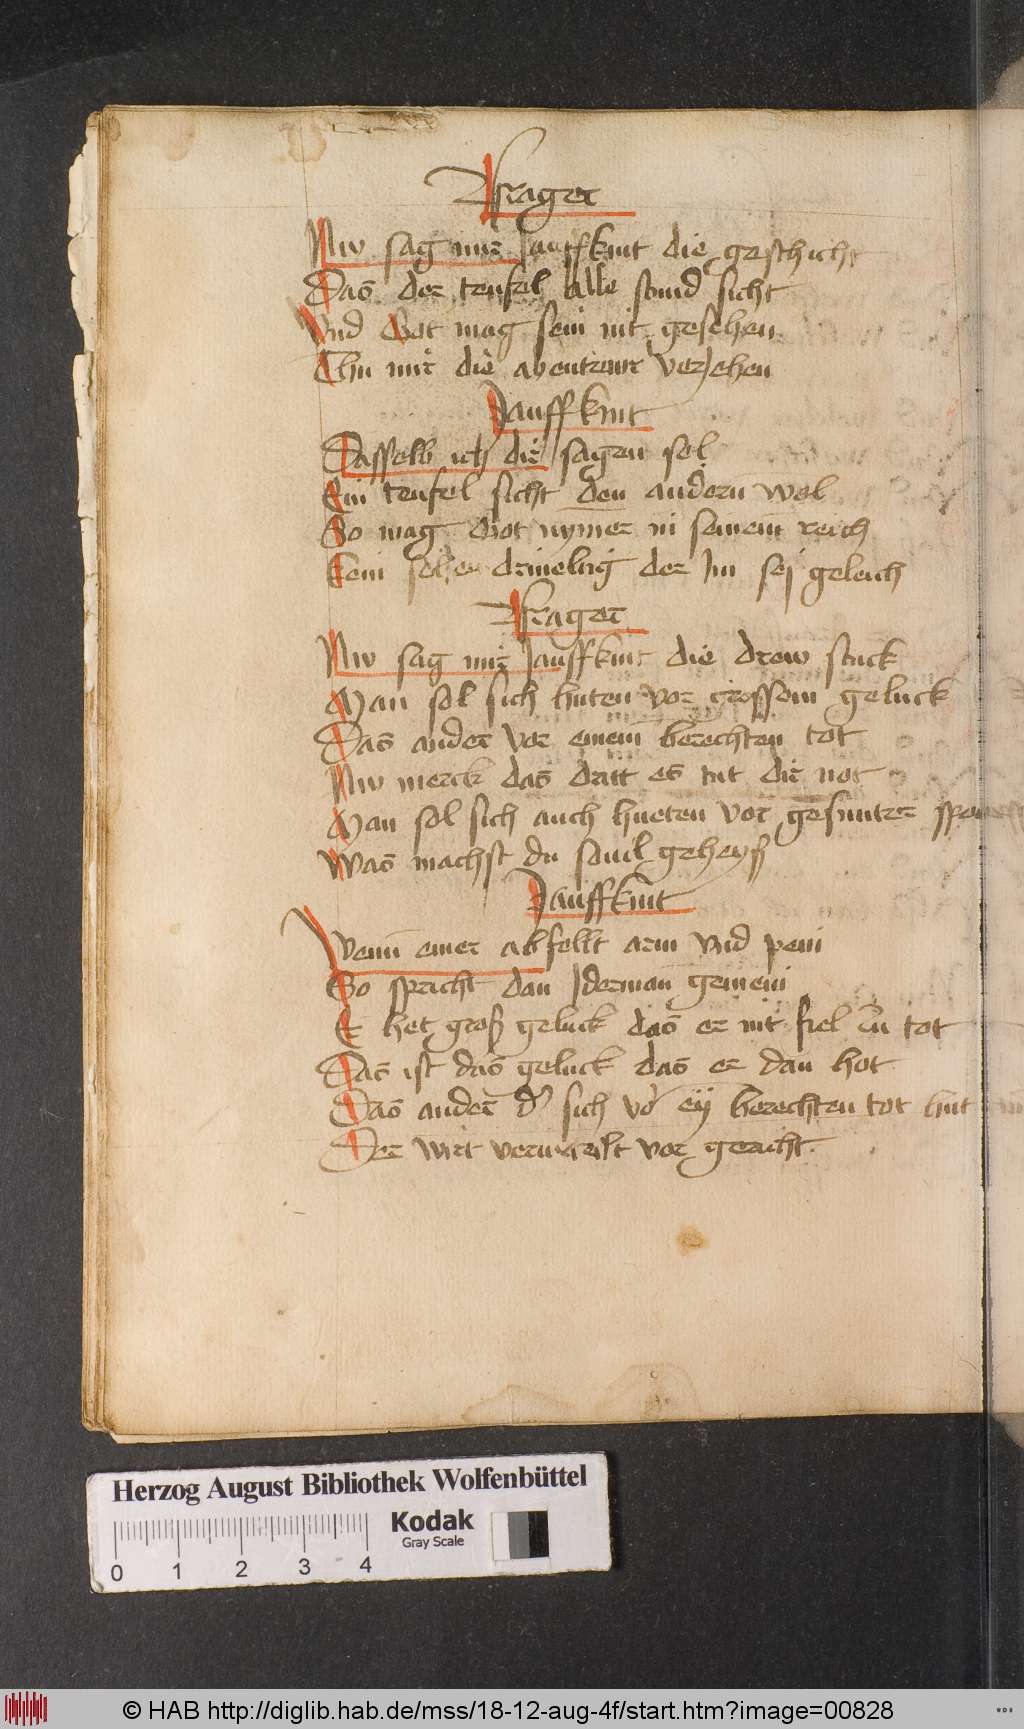 Vrager
Nw sag mir lauffkint die geschicht
Das der teufel alle stund sicht
Vnd Got mag sein nit gesehen
Thu mir die abentewr verjehen
lauffkint
Dasselb ich dir sagen sol
Ein teufel sicht den andern wol
So mag Got nymer in seinem reich
kein der Im sej geleich
Vrager
Nw sag mir lauffkint die drew stuck
Man sol sich huten vor grossem geluck
Das ander vor einem berechten tot
Nw merck das dritt es tut dir not
Man sol sich auch hueten vor gesunter
Was machst du sovil geheyß
lauffkint
Wenn einer abfellt arm vnd pein
So spricht dan Iderman gemein
Er het groß geluck das er nit fiel zu tot
Das ist das geluck das er dan hot
Das ander sich vor berechten tot hut
Der wirt vor gericht
Herzog August Bibliothek Wolfenbüttel
Kodak
Gray Scale
0 1 2 3 4
© HAB http://diglib.hab.de/mss/18-12-aug-4f/start.htm?image=00828